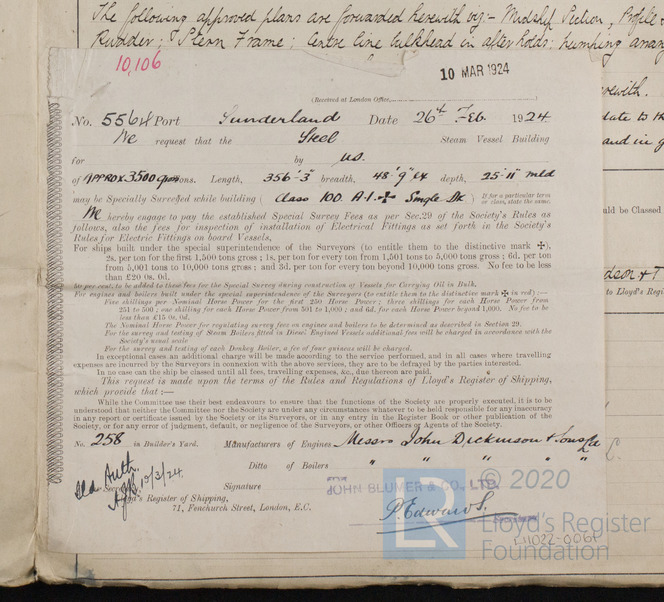 The following approved plans are forwarded herewith viz:- Midship Section, Profile &
Rudder; & Stern Frame; Centre line bulkhead in after holds; pumping
10,106
10 MAR 1924
(Received at London Office,
No. 5564 Port Sunderland Date 26th Feb. 1924
We request that the Steel Steam Vessel Building
for by us.
of APPROX 3500 Gross tons. Length, 356'-3" breadth, 48'-9" ex depth, 25'-11" mld
may be Specially Surveyed while building ( Class 100 A.1. ✠ Single Dk ) If for a particular term or class, state the same.
We hereby engage to pay the established Special Survey Fees as per Sec.29 of the Society's Rules as
follows, also the fees for inspection of installation of Electrical Fittings as set forth in the Society's
Rules for Electric Fittings on board Vessels,
For ships built under the special superintendence of the Surveyors (to entitle them to the distinctive mark ✠),
2s. per ton for the first 1,500 tons gross; 1s. per ton for every ton from 1,501 tons to 5,000 tons gross; 6d. per ton
from 5,001 tons to 10,000 tons gross; and 3d. per ton for every ton beyond 10,000 tons gross. No fee to be less
than £20 0s. 0d.
per cent. to be added to these fees for Special Survey during construction of Vessels for Carrying Oil in Bulk.
For engines and boilers built under the special superintendence of the Surveyors (to entitle them to the distinctive mark ✠ in red) :—
Five shillings per Nominal Horse Power for the first 250 Horse Power; three shillings for each Horse Power from
251 to 500; one shilling for each Horse Power from 501 to 1,000; and 6d. for each Horse Power beyond 1,000. No fee to be
less than £15 0s. 0d.
The Nominal Horse Power for regulating survey fees on engines and boilers to be determined as described in Section 29.
For the survey and testing of Steam Boilers fitted in Diesel Engined Vessels additional fees will be charged in accordance with the
Society's usual scale
For the survey and testing of each Donkey Boiler, a fee of four guineas will be charged.
In exceptional cases an additional charge will be made according to the service performed, and in all cases where travelling
expenses are incurred by the Surveyors in connection with the above services, they are to be defrayed by the parties interested.
In no case can the ship be classed until all fees, travelling expenses, &c., due thereon are paid.
This request is made upon the terms of the Rules and Regulations of Lloyd's Register of Shipping,
which provide that :—
While the Committee use their best endeavours to ensure that the functions of the Society are properly executed, it is to be
understood that neither the Committee nor the Society are under any circumstances whatever to be held responsible for any inaccuracy
in any report or certificate issued by the Society or its Surveyors, or in any entry in the Register Book or other publication of the
Society, or for any error of judgment, default, or negligence of the Surveyors, or other Officers or Agents of the Society.
No. 258 in Builder's Yard. Manufacturers of Engines Messrs John Dickinson & Sons Ltd
Ditto of Boilers " " " "
10/3/24.
Signature JOHN BLUMER & CO., LTD.
Lloyd's Register of Shipping,
71, Fenchurch Street, London, E.C.
P. Edwards.
herewith.
and in
uld be Classed
to Lloyd's Regis
LR © 2020
Lloyd's Register
Foundation